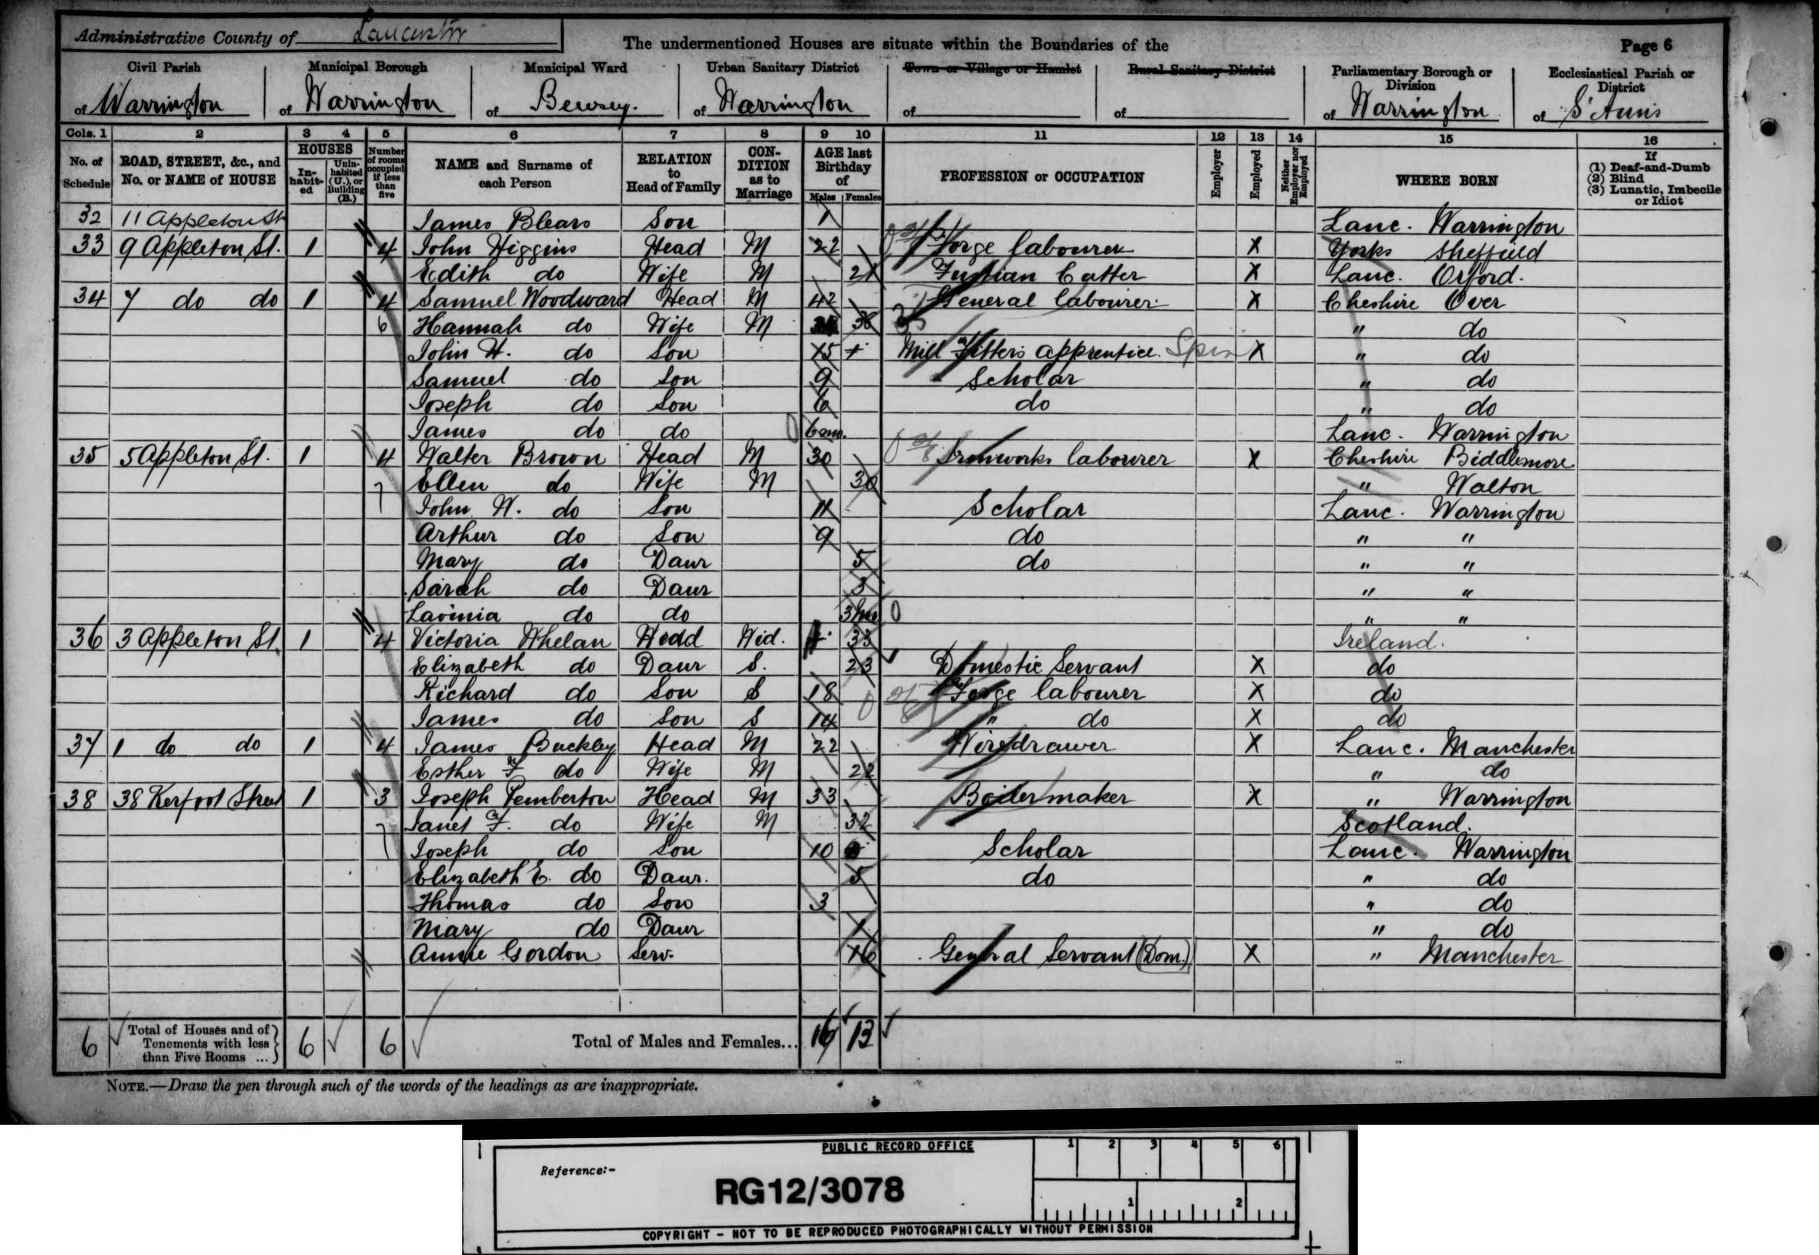 Administrative County of Lancaster
The undermentioned Houses are situate within the Boundaries of the
Page 6
Civil Parish of Warrington
Municipal Borough of Warrington
Municipal Ward of Bewsey.
Urban Sanitary District of Warrington
Town or Village or Hamlet of
Rural Sanitary District of
Parliamentary Borough or Division of Warrington
Ecclesiastical Parish or District of St Anns
Cols. 1 2 3 4 5 6 7 8 9 10 11 12 13 14 15 16
No. of Schedule
ROAD, STREET, &c., and No. or NAME of HOUSE
HOUSES
In-habit-ed
Unin-habited (U.), or Building (B.)
Number of rooms occupied if less than five
NAME and Surname of each Person
RELATION to Head of Family
CON-DITION as to Marriage
AGE last Birthday of
Males Females
PROFESSION or OCCUPATION
Employer
Employed
Neither Employer nor Employed
WHERE BORN
If (1) Deaf-and-Dumb (2) Blind (3) Lunatic, Imbecile or Idiot
32 11 Appleton St James Blears Son 1 Lanc. Warrington
33 9 Appleton St. 1 4 John Higgins Head M 22 Forge labourer X Yorks Sheffield
Edith do Wife M 21 Fustian Cutter X Lanc. Orford.
34 7 do do 1 4 Samuel Woodward Head M 42 General labourer X Cheshire Over
6 Hannah do Wife M 38 " do
John H. do Son 15 Mill Fitters apprentice. Spin X " do
Samuel do Son 9 Scholar " do
Joseph do Son 6 do " do
James do do 6 mo. Lanc. Warrington
35 5 Appleton St. 1 4 Walter Brown Head M 30 Ironworks labourer X Cheshire Biddlemore
7 Ellen do Wife M 30 " Walton
John W. do Son 11 Scholar Lanc. Warrington
Arthur do Son 9 do " "
Mary do Daur 5 do " "
Sarah do Daur 3 " "
Lavinia do do " "
36 3 Appleton St. 1 4 Victoria Whelan Head Wid. Ireland.
Elizabeth do Daur S. 23 Domestic Servant X do
Richard do Son S 18 Forge labourer X do
James do Son S 14 " do X do
37 1 do do 1 4 James Buckley Head M 22 Wiredrawer X Lanc. Manchester
Esther F do Wife M 22 " do
38 38 Kerfoot Street 1 3 Joseph Pemberton Head M 33 Boilermaker X " Warrington
7 Janet F. do Wife M 32 Scotland.
Joseph do Son 10 Scholar Lanc. Warrington
Elizabeth E. do Daur. 5 do " do
Thomas do Son 3 " do
Mary do Daur 1 " do
Annie Gordon Serv. 16 General Servant (Dom.) X " Manchester
6 Total of Houses and of Tenements with less than Five Rooms ... 6 6 Total of Males and Females... 16 13
NOTE.—Draw the pen through such of the words of the headings as are inappropriate.
PUBLIC RECORD OFFICE
1 2 3 4 5 6
Reference:-
RG12/3078
1 2
COPYRIGHT - NOT TO BE REPRODUCED PHOTOGRAPHICALLY WITHOUT PERMISSION